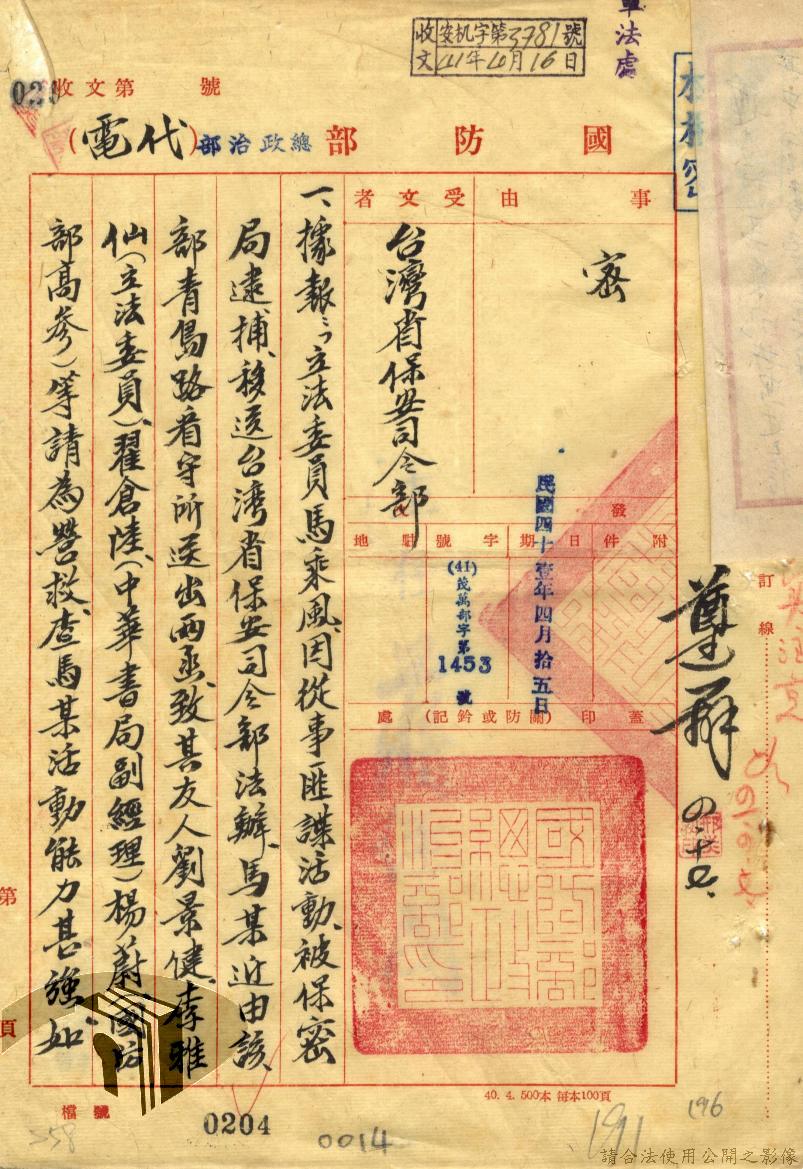 收文
安机字第3781號
41年4月16日
軍法處
收文第 號
國防部總政治部(代電)
事由
密
受文者
台灣省保安司令部
附件
發
日期
民國四十壹年四月拾五日
字號
(41)茂萬部字第1453號
駐地
蓋印(關防或鈐記)處
國防部總政治部印
一、據報：立法委員馬乘風因從事匪諜活動、被保密
局逮捕、移送台灣省保安司令部法辦、馬某近由該
部青島路看守所送出兩函、致其友人劉景健、李雅
仙(立法委員)、翟倉陸、(中華書局副經理)楊蔚(國防
部高參)等請為營救、查馬某活動能力甚強、如
遵辦
四、十七、
訂線
第 頁
檔號
0204
0014
191
196
40. 4. 500本 每本100頁
請合法使用公開之影像